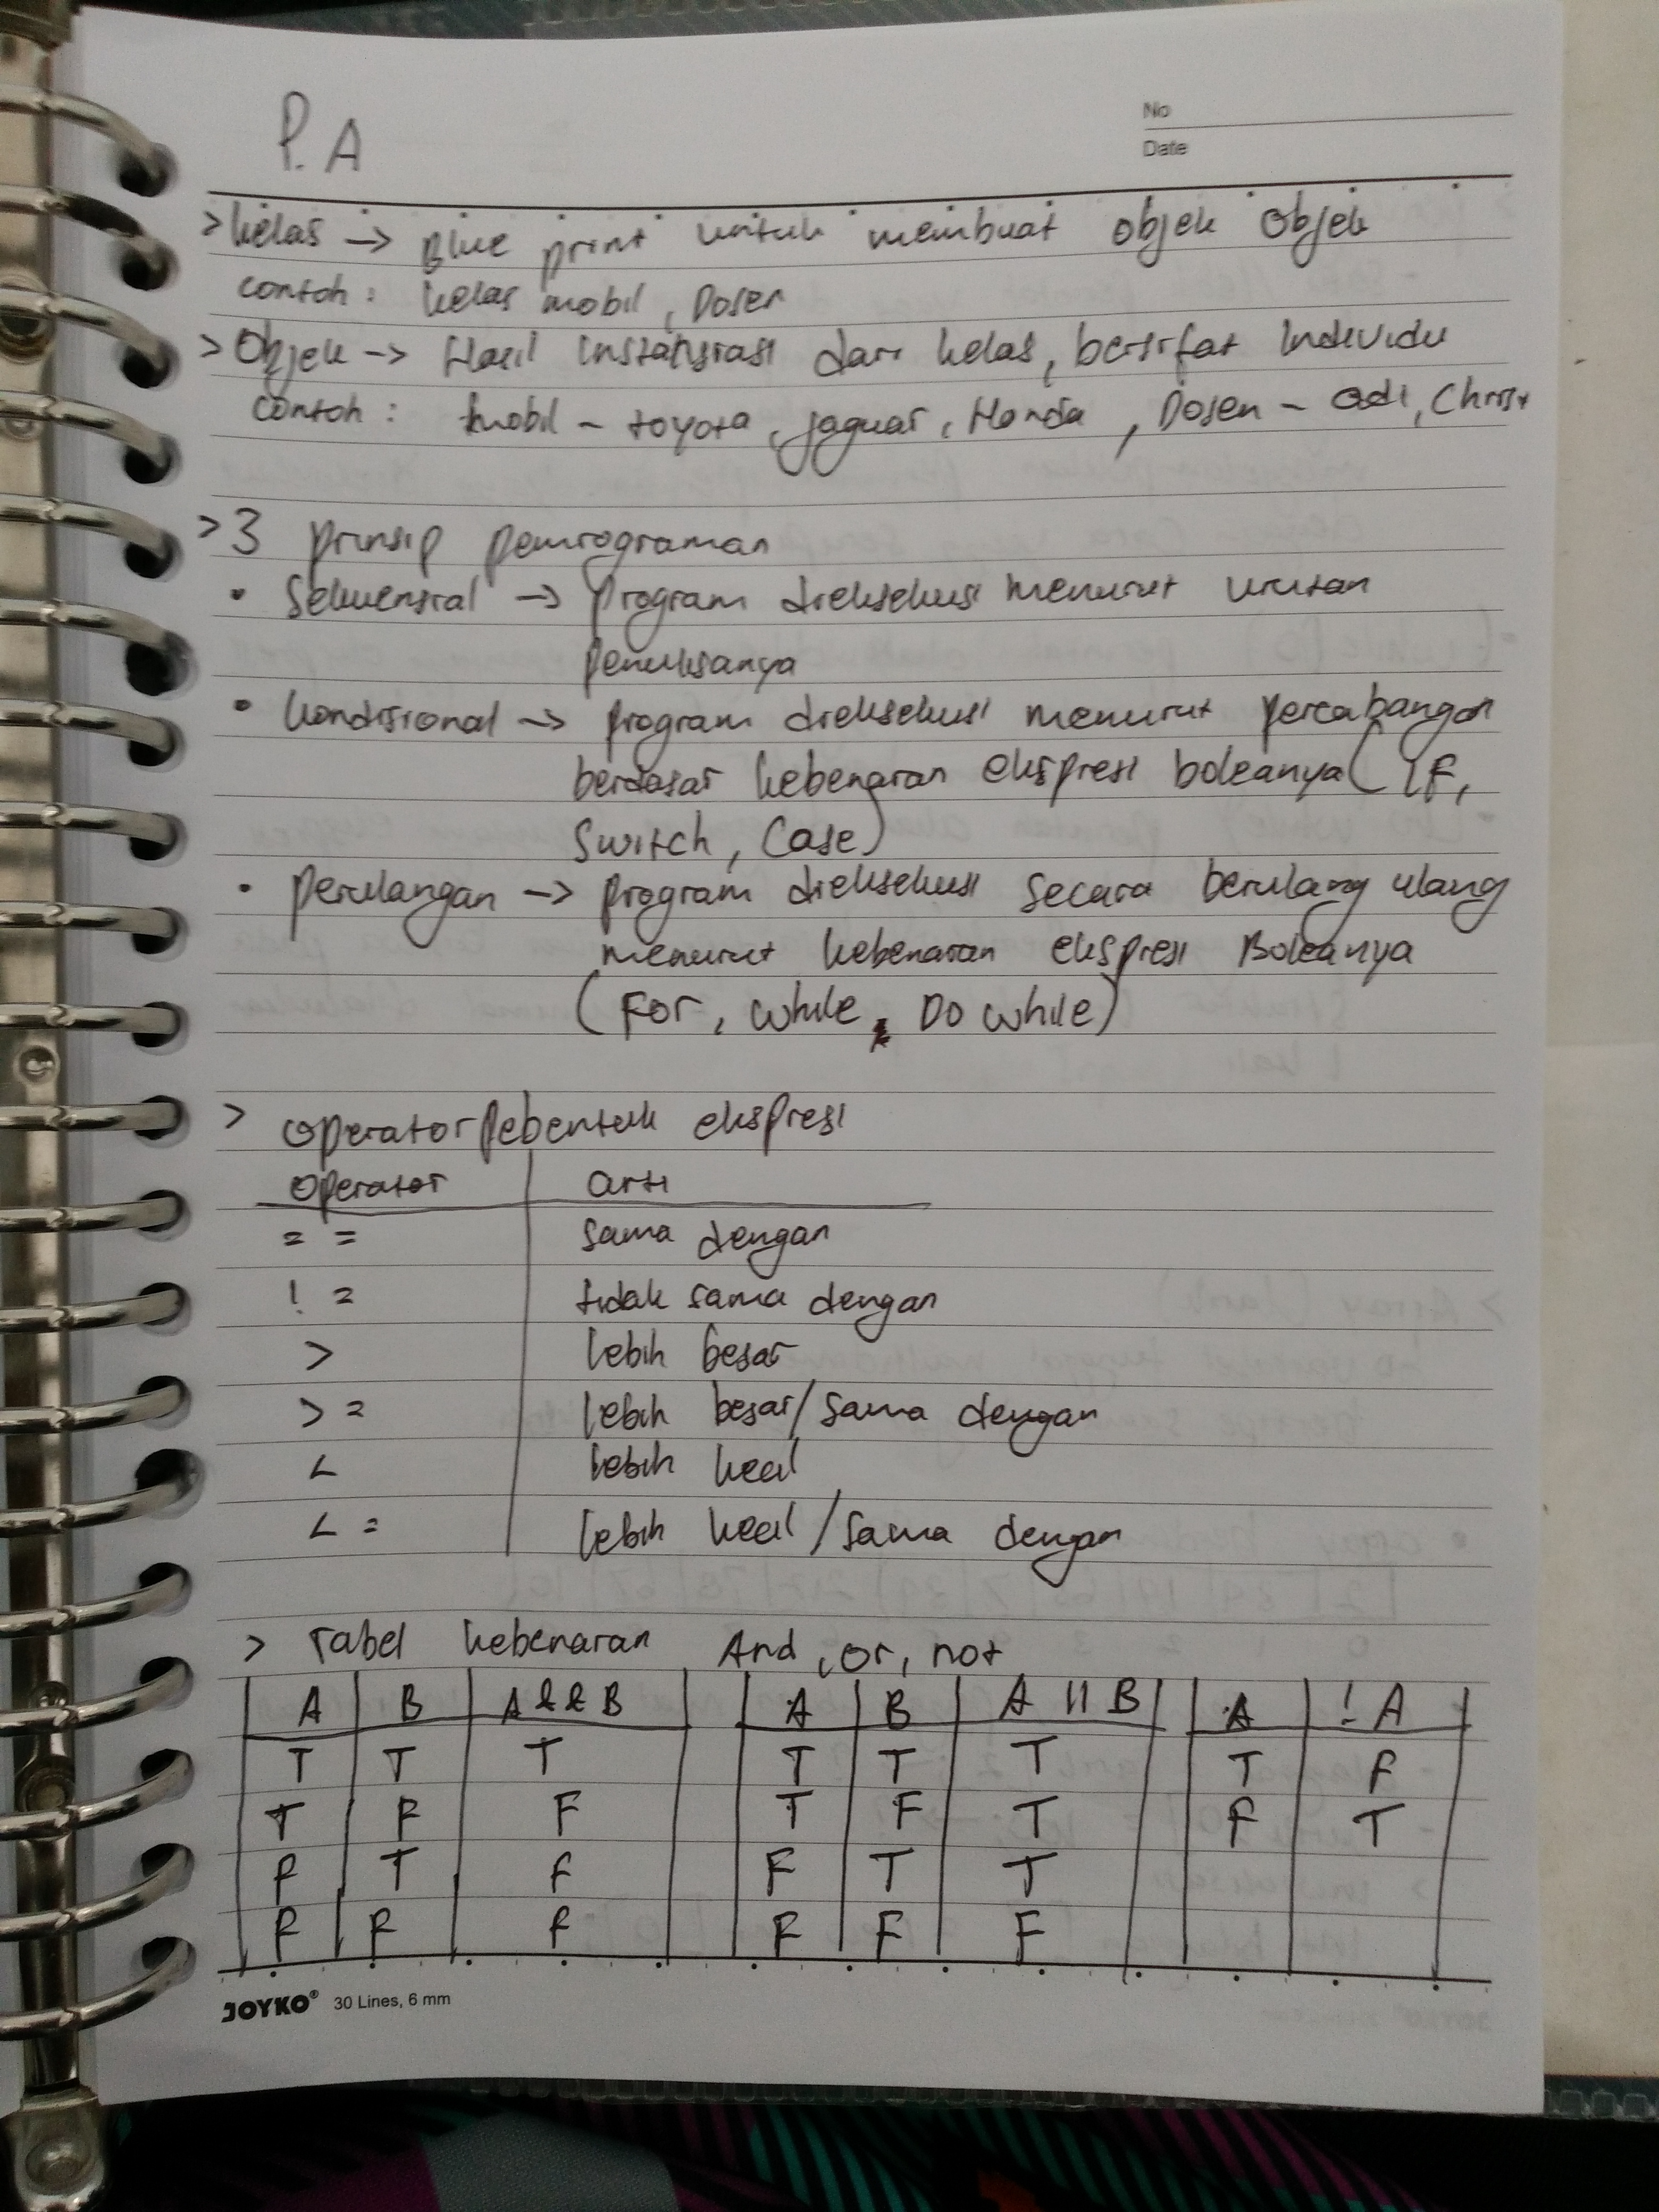 P.A
No
Date
> kelas → Blue print untuk membuat objek objek
contoh : kelas mobil, Dosen
> Objek → Hasil instansiasi dari kelas, bersifat Individu
contoh : mobil - toyota, jaguar, Honda, Dosen - adi, Christ
> 3 prinsip pemrograman
• Sekuensial → program dieksekusi menurut urutan
penulisanya
• kondisional → program dieksekusi menurut percabangan
berdasar kebenaran ekspresi boleanya (IF,
Switch, Case)
• perulangan → program dieksekusi secara berulang ulang
menurut kebenaran ekspresi Boleanya
(For, while, Do while)
> operator pebentuk ekspresi
operator arti
= = sama dengan
! = tidak sama dengan
> lebih besar
> = lebih besar/sama dengan
< lebih kecil
< = lebih kecil/sama dengan
> Tabel kebenaran And, or, not
A B A && B A B A || B A ! A
T T T T T T T F
T F F T F T F T
F T F F T T
F F F F F F
JOYKO® 30 Lines, 6 mm